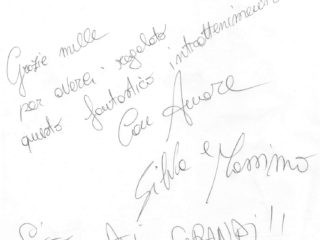 Grazie mille
per averci regalato
questo fantastico intrattenimento
Con Amore
Silvia e Massimo
GRANDI!!